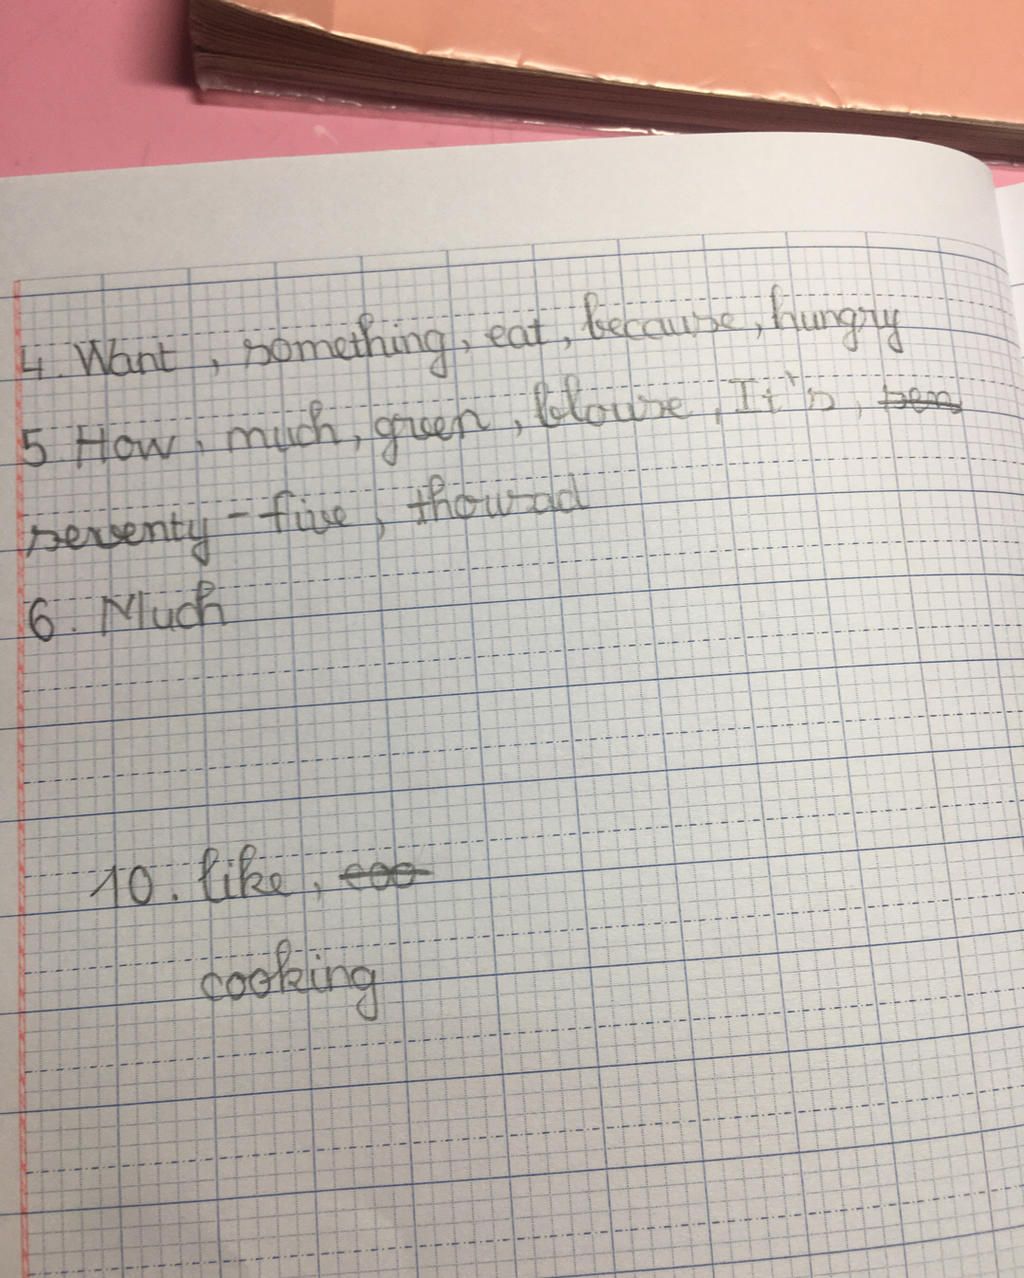 4. Want, something, eat, because, hungry
5. How, much, green, blouse, It's, sen
seventy-five, thousad
6. Much
10. like, coo
cooking